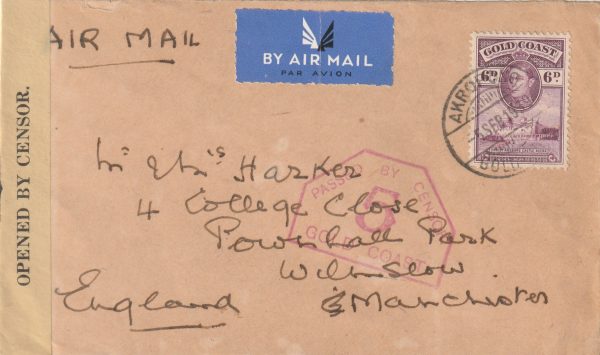 AIR MAIL
BY AIR MAIL
PAR AVION
GOLD COAST
6D 6D
OPENED BY CENSOR.
Mr & Mrs Harker
4 College Close
Pownall Park
Wilmslow
Manchester
England
PASSED BY CENSOR
5
GOLD COAST